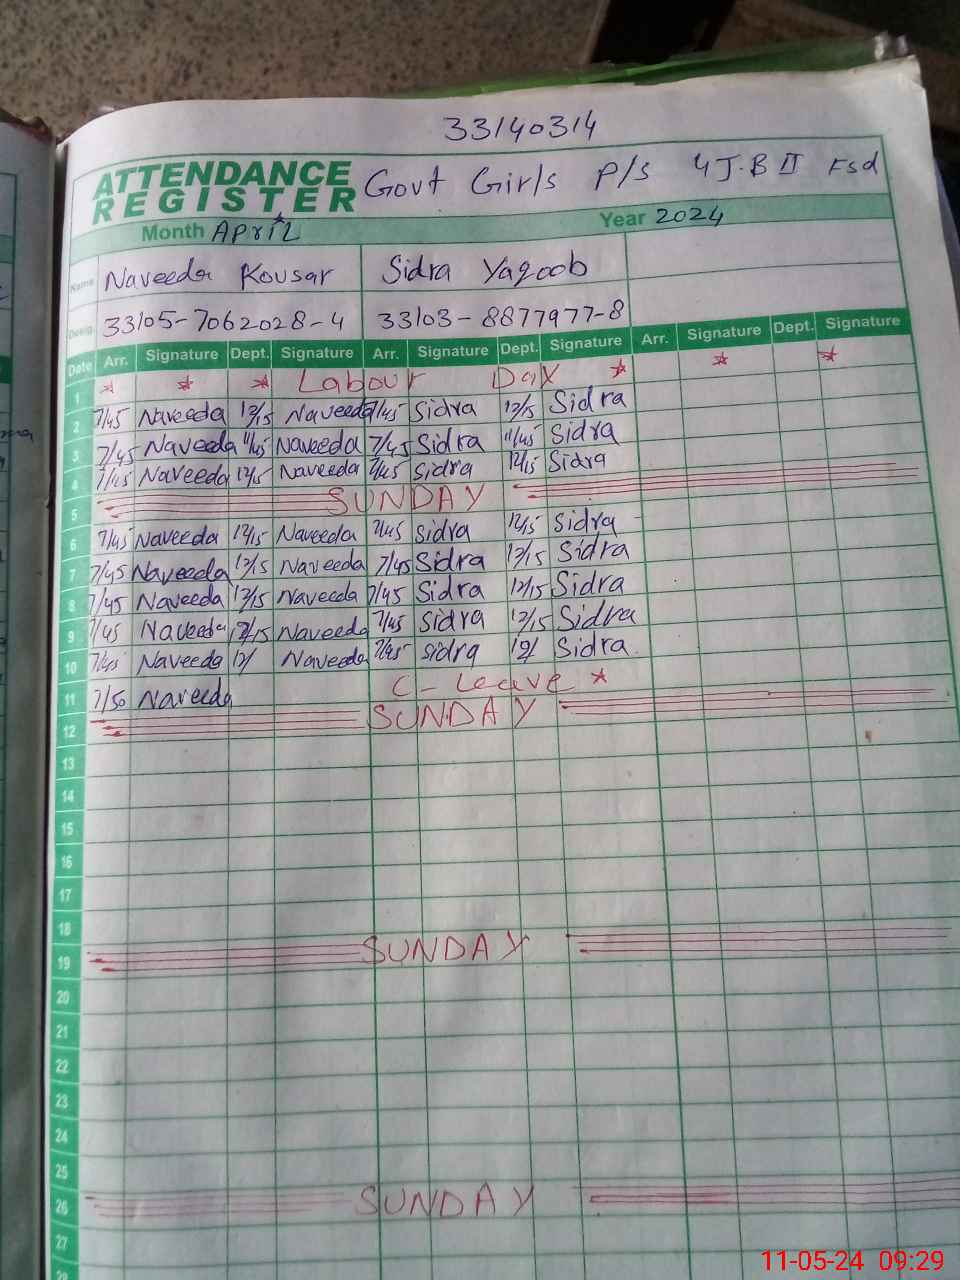 33140314
ATTENDANCE REGISTER Govt Girls P/s 4 J.B II Fsd
Month April Year 2024
Name Naveeda Kousar Sidra Yaqoob
Desig. 33105-7062028-4 33103-8877977-8
Date Arr. Signature Dept. Signature Arr. Signature Dept. Signature Arr. Signature Dept. Signature
1 Labour Day
2 7/45 Naveeda 12/15 Naveeda 7/45 Sidra 12/15 Sidra
3 7/45 Naveeda 11/45 Naveeda 7/45 Sidra 11/45 Sidra
4 7/45 Naveeda 12/15 Naveeda 7/45 Sidra 12/15 Sidra
5 SUNDAY
6 7/45 Naveeda 12/15 Naveeda 7/45 Sidra 12/15 Sidra
7 7/45 Naveeda 12/15 Naveeda 7/45 Sidra 12/15 Sidra
8 7/45 Naveeda 12/15 Naveeda 7/45 Sidra 12/15 Sidra
9 7/45 Naveeda 12/15 Naveeda 7/45 Sidra 12/15 Sidra
10 7/45 Naveeda 12/ Naveeda 7/45 Sidra 12/ Sidra
11 7/50 Naveeda C-Leave
12 SUNDAY
13
14
15
16
17
18
19 SUNDAY
20
21
22
23
24
25
26 SUNDAY
27
28
11-05-24 09:29